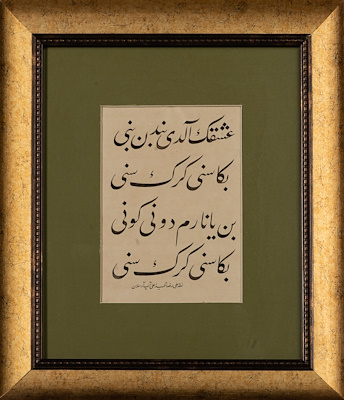 عشقك آلدی بندن بنی
بكا سنی كرك سنی
بن یانارم دونی كونی
بكا سنی كرك سنی